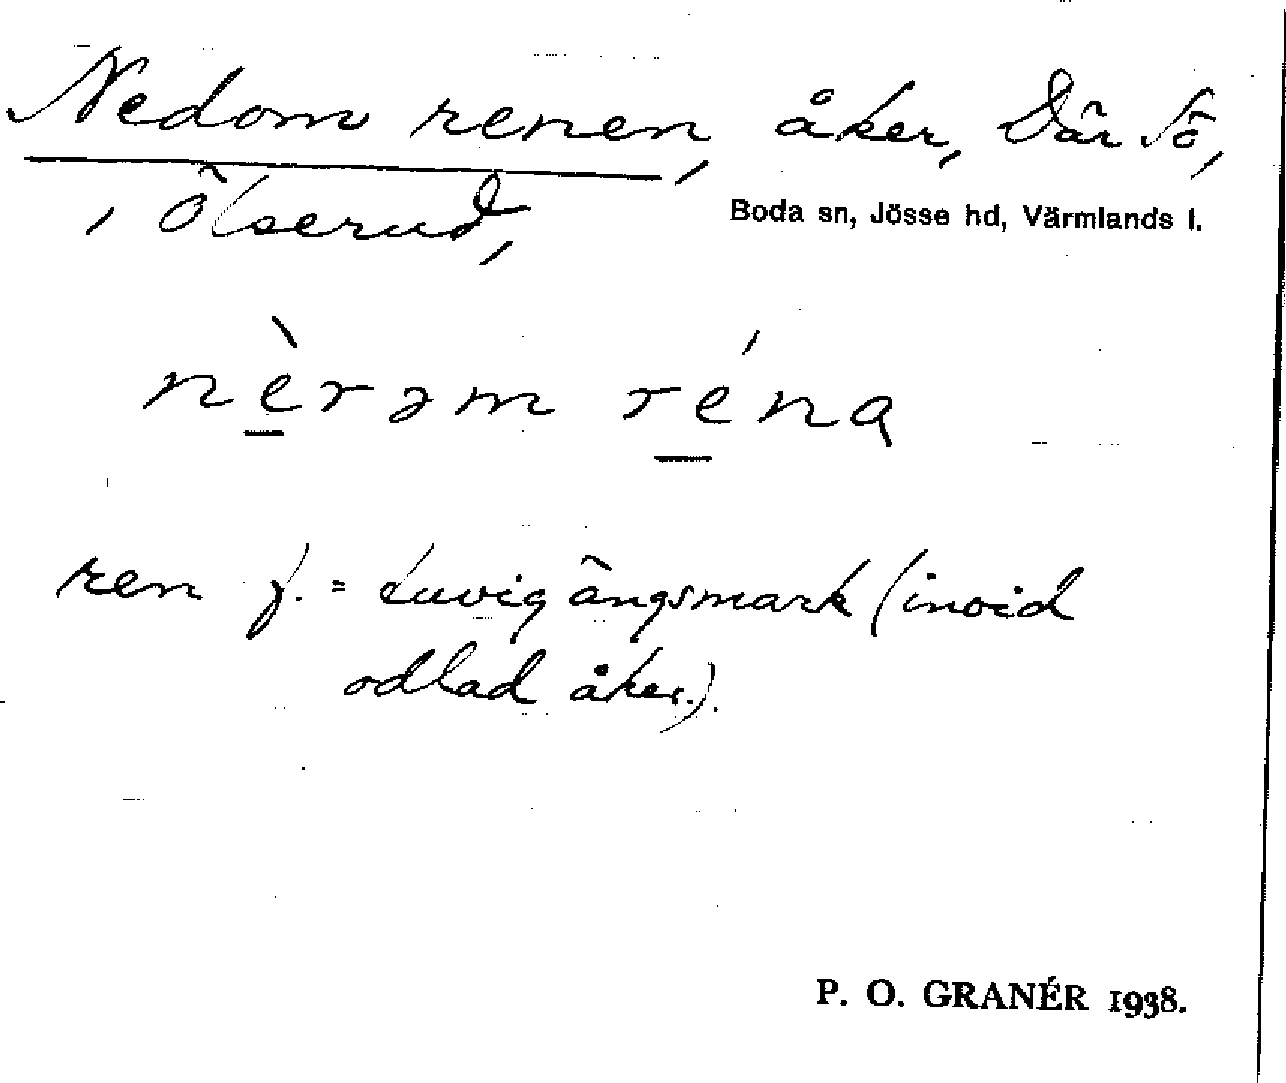 Nedom renen, åker, Där Sö,
i Ölserud,
Boda sn, Jösse hd, Värmlands l.
nèrəm réna
ren f. = tuvig ängsmark (invid
odlad åker.).
P. O. GRANÉR 1938.